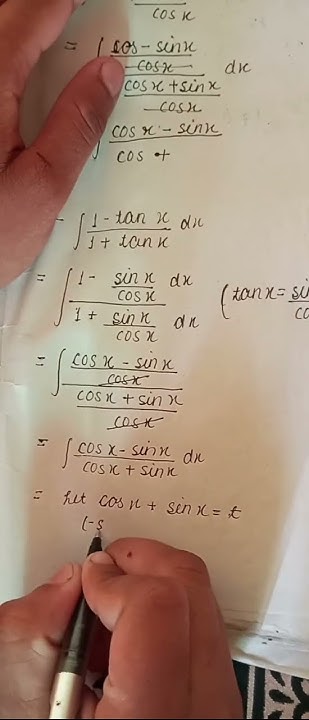 cos x
= ∫ (cos - sin x / cos x) / (cos x + sin x / cos x) dx
∫ cos x - sin x / cos +
- ∫ 1 - tan x / 1 + tan x dx
= ∫ (1 - sin x / cos x dx) / (1 + sin x / cos x dx) (tan x = sin / co
= ∫ (cos x - sin x / cos x) / (cos x + sin x / cos x)
= ∫ cos x - sin x / cos x + sin x dx
= Let cos x + sin x = t
(-s